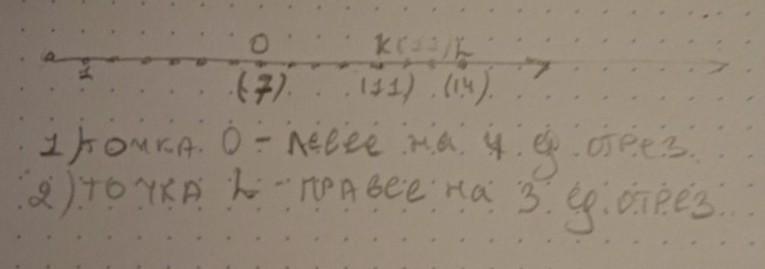 O K(11) L
1 (7) (11) (14)
1) точка O - левее на 4 ед отрез.
2) точка L - правее на 3 ед. отрез.